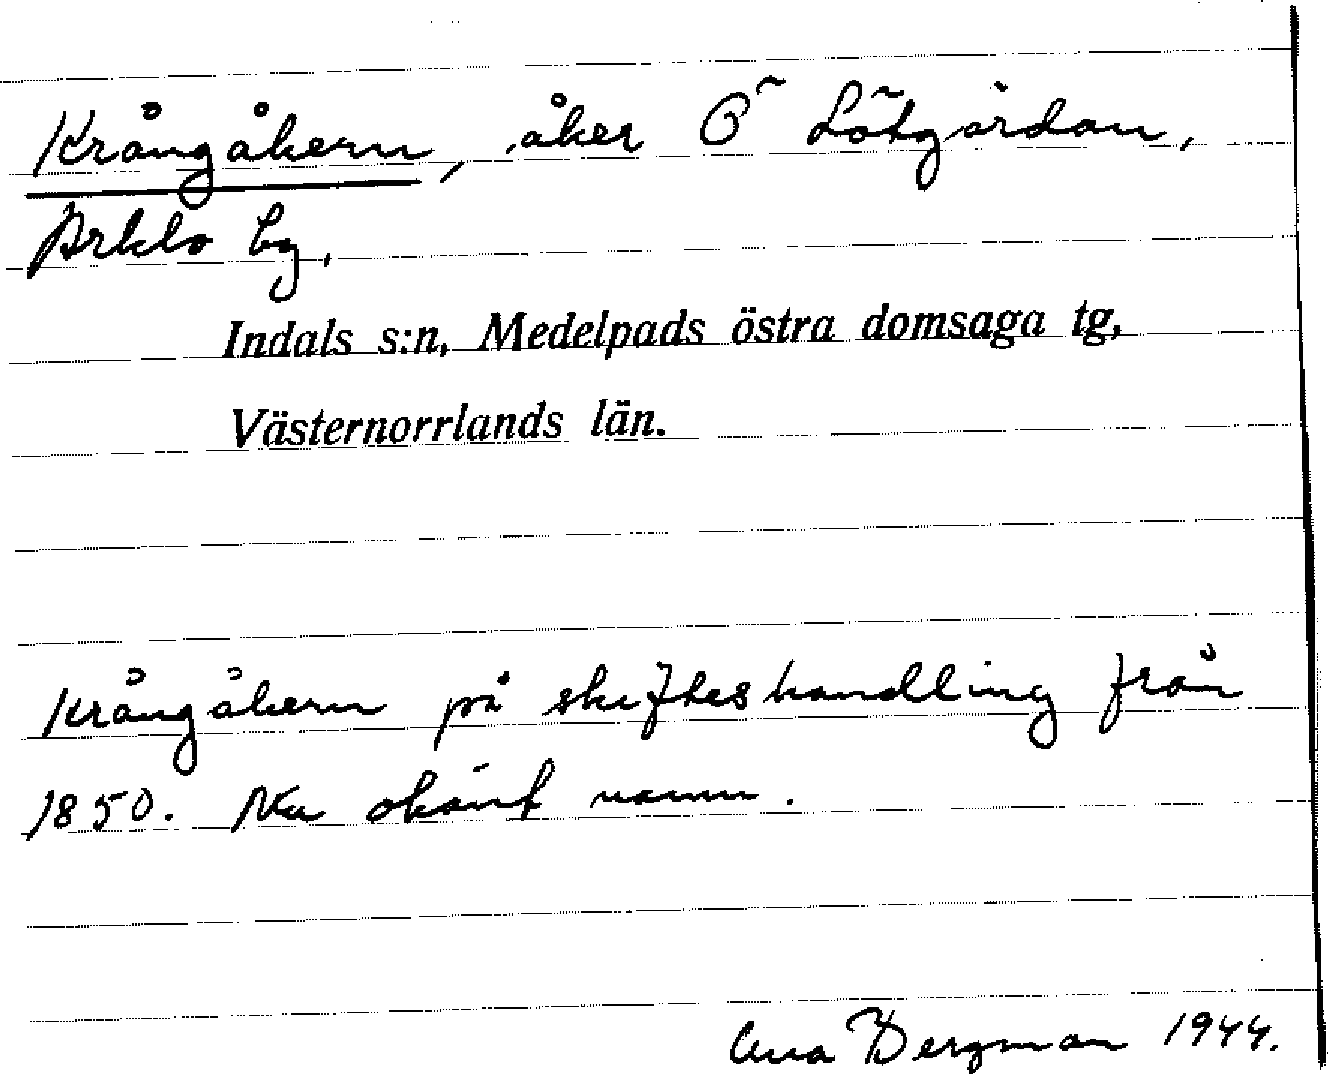 Krångåkern, åker Ö Lötgårdan,
Arklo by,
Indals s:n, Medelpads östra domsaga tg,
Västernorrlands län.
Krångåkern på skifteshandling från
1850. Nu okänt namn.
Bergman 1944.